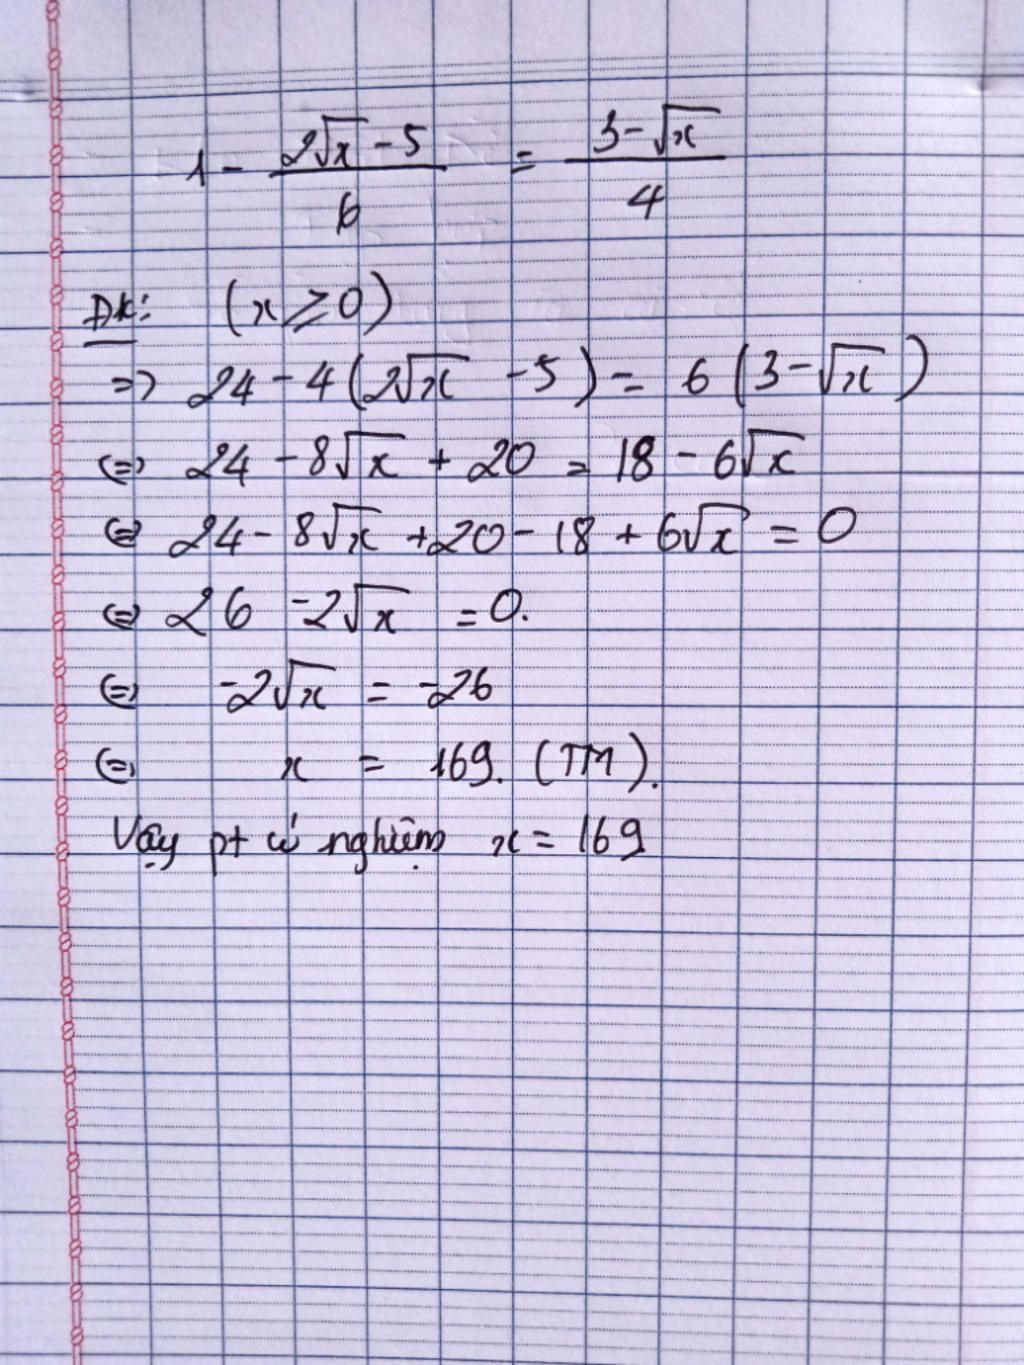 1 - (2√x - 5)/6 = (3 - √x)/4
ĐK: (x ≥ 0)
=> 24 - 4(2√x - 5) = 6(3 - √x)
(=) 24 - 8√x + 20 = 18 - 6√x
(=) 24 - 8√x + 20 - 18 + 6√x = 0
(=) 26 - 2√x = 0.
(=) -2√x = -26
(=) x = 169. (TM).
Vậy pt có nghiệm x = 169